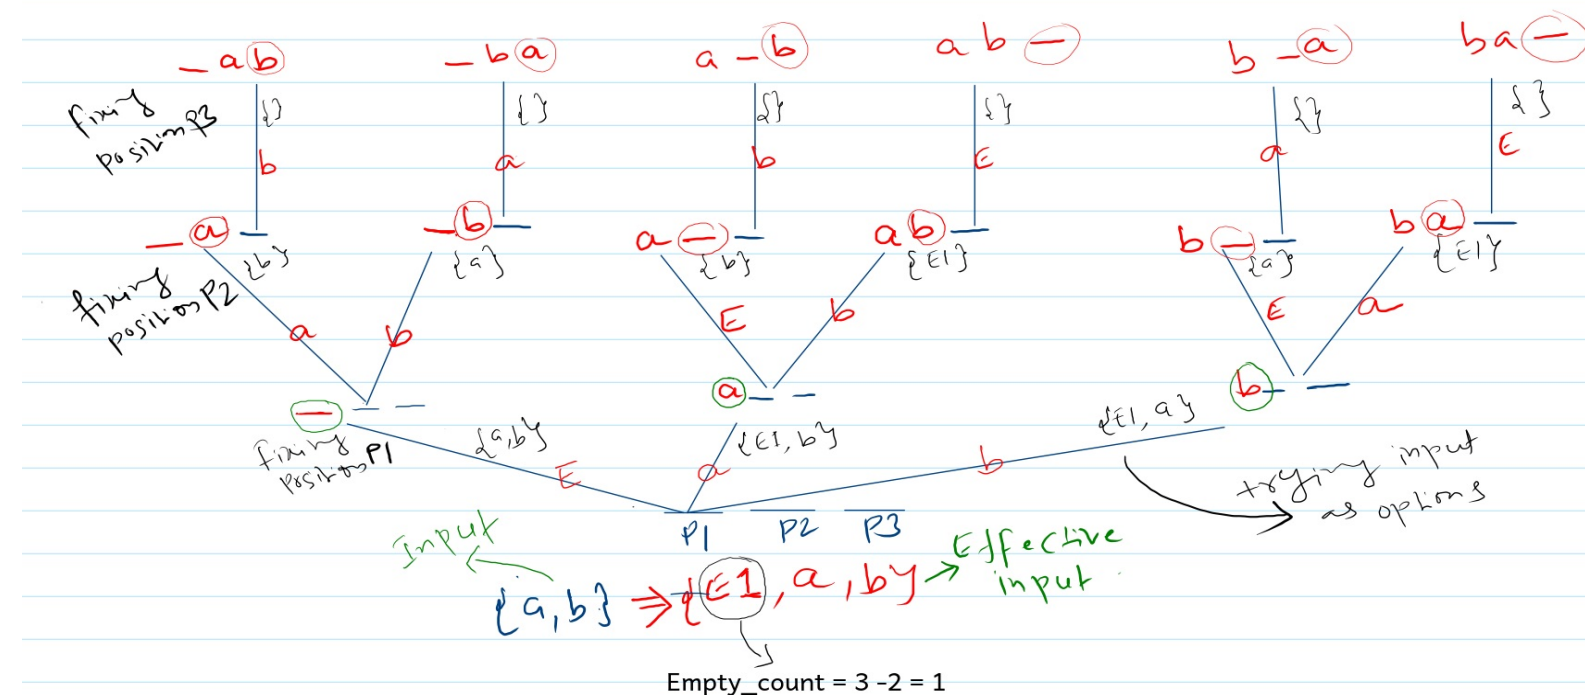 _ a b
_ b a
a _ b
a b _
b _ a
b a _
fixing
position P3
{}
{}
{}
{}
{}
{}
b
a
b
E
a
E
_ a _
_ b _
a _ _
a b _
b _ _
b a _
{b}
{a}
{b}
{E1}
{a}
{E1}
fixing
position P2
a
b
E
b
E
a
_ _ _
a _ _
b _ _
fixing
position P1
{a,b}
{E1, b}
{E1, a}
E
a
b
trying input
as options
P1 P2 P3
Input
Effective
input
{a,b} ⇒ {E1, a, b}
Empty_count = 3 -2 = 1